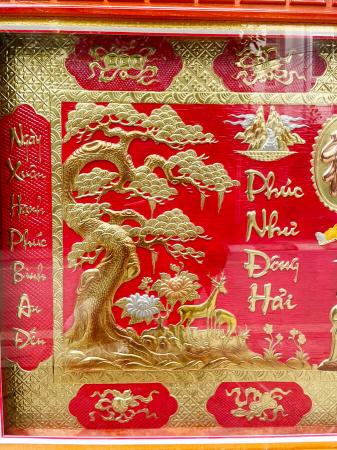 Ngày
Xuân
Hạnh
Phúc
Bình
An
Đến
Phúc
Như
Đông
Hải